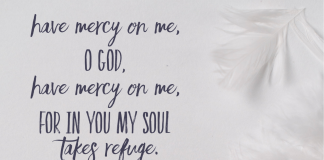 have mercy on me,
O GOD,
have mercy on me,
FOR IN YOU MY SOUL
takes refuge.